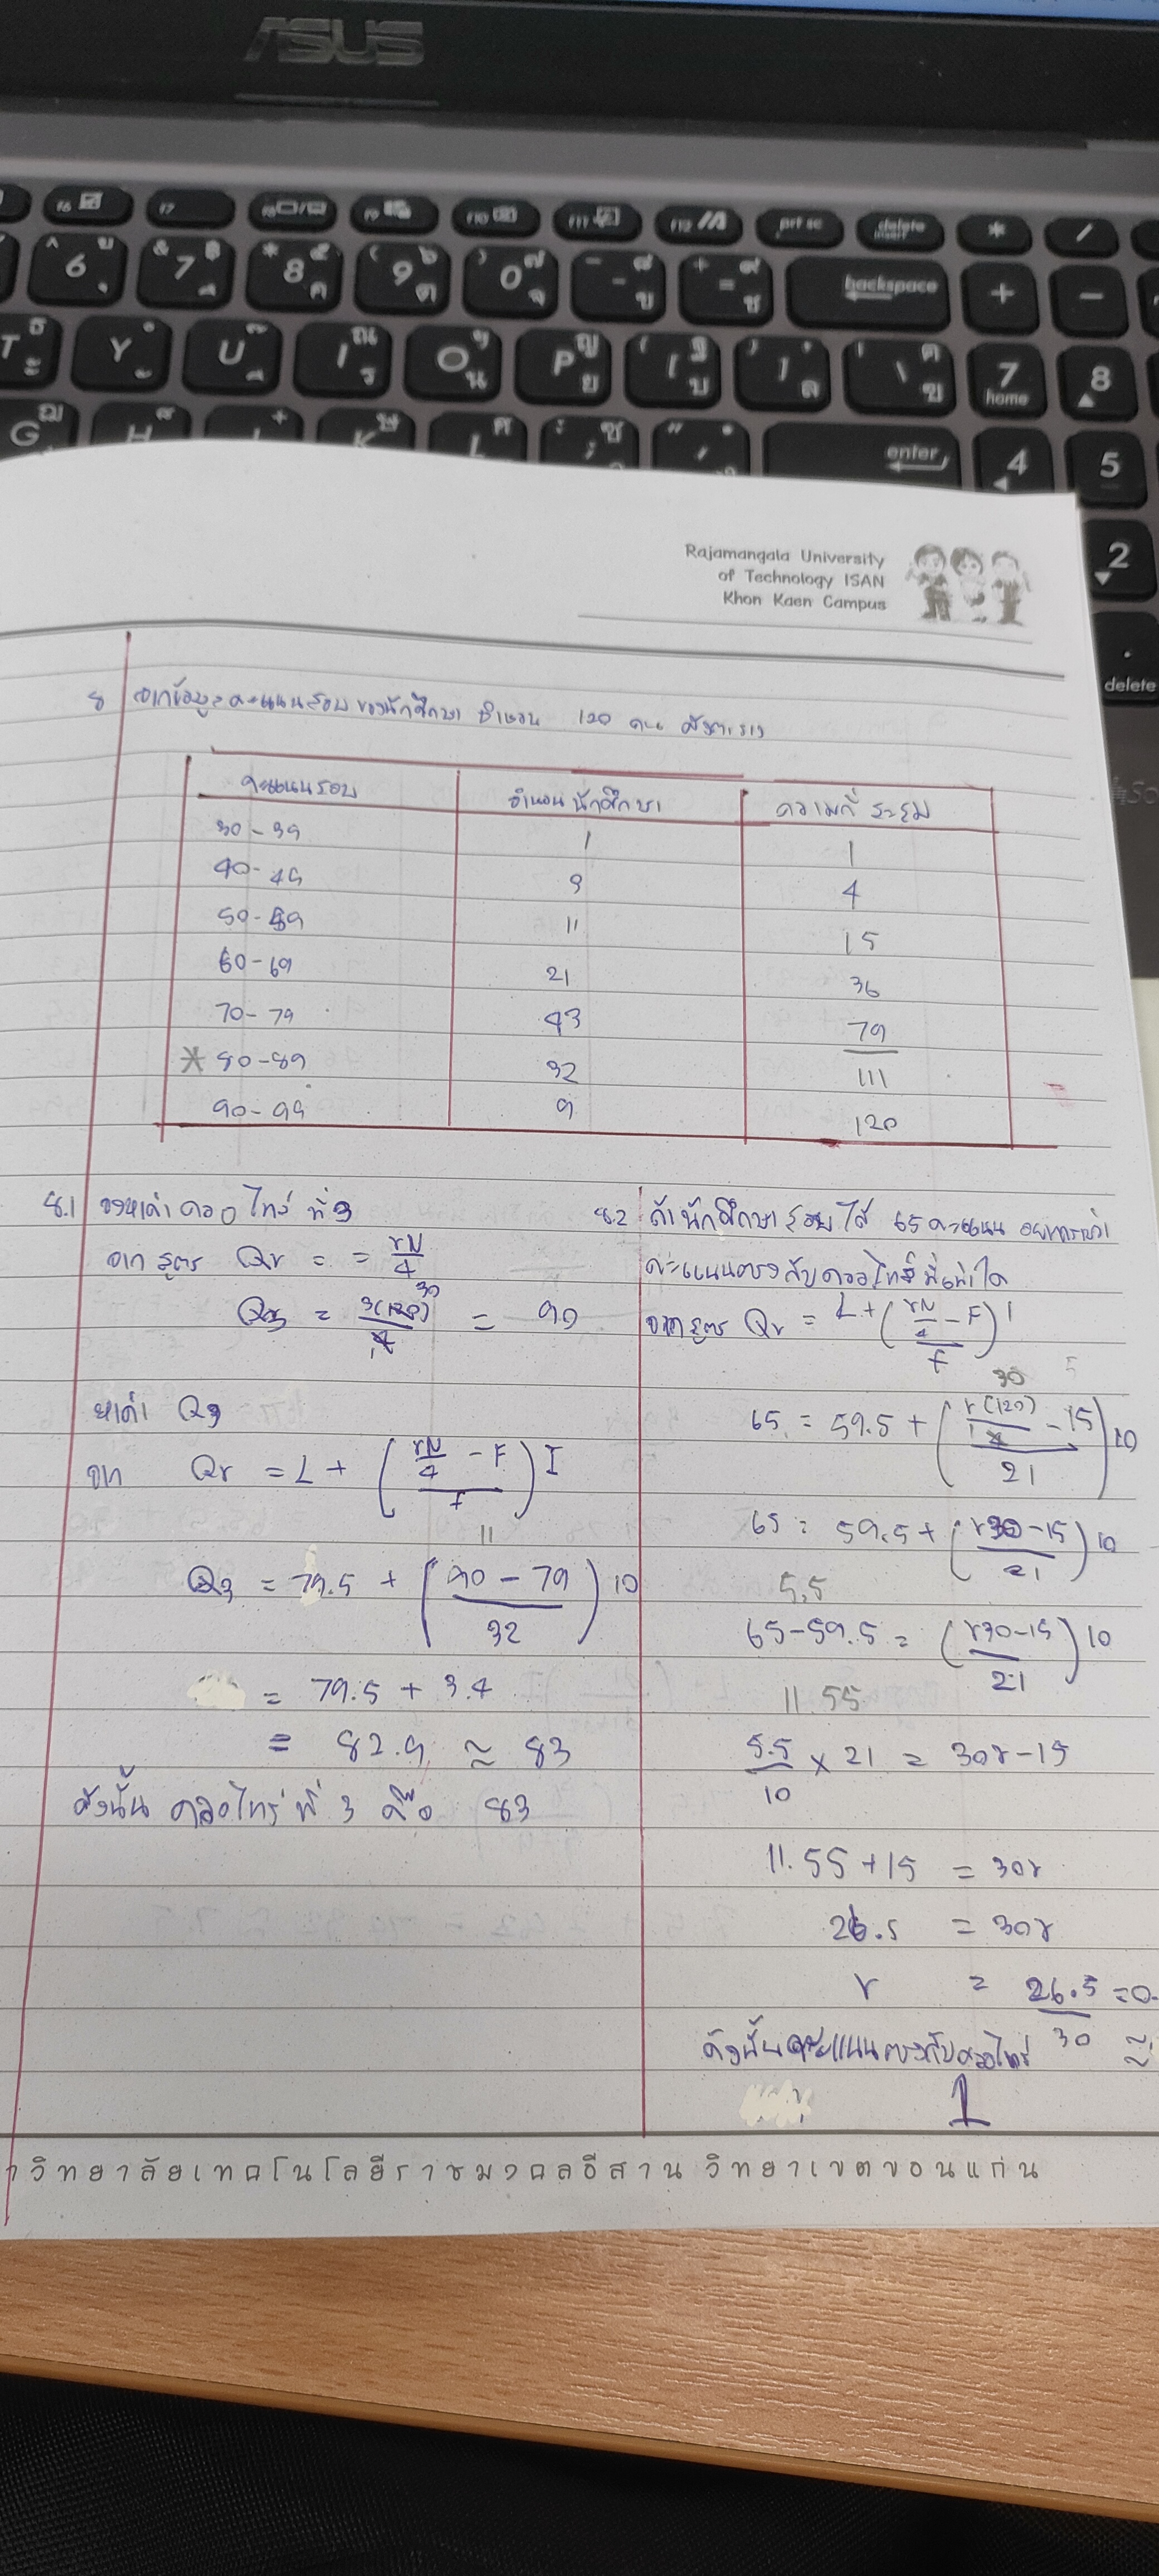 ASUS
f6 f7 f8 f9 f10 f11 f12 prt sc delete insert * /
6 7 8 9 0 - = backspace + -
T Y U I O P [ ] \ 7 home 8
G H J K L ; ' enter 4 5
2
delete
Rajamangala University
of Technology ISAN
Khon Kaen Campus
8 จากข้อมูลคะแนนสอบของนักศึกษา จำนวน 120 คน ดังตาราง
คะแนนสอบ จำนวนนักศึกษา ความถี่สะสม
30-39 1 1
40-49 3 4
50-59 11 15
60-69 21 36
70-79 43 79
* 80-89 32 111
90-99 9 120
8.1 จงหาค่าควอไทล์ที่ 3
จากสูตร Qr = = rN/4
Q3 = 3(120)/4 30 = 90
หาค่า Q3
จาก Qr = L + ((rN/4 - F)/f) I
11
Q3 = 79.5 + ((90 - 79)/32) 10
= 79.5 + 3.4
= 82.9 ≈ 83
ดังนั้น ควอไทร์ที่ 3 คือ 83
8.2 ถ้านักศึกษาสอบได้ 65 คะแนน อยากทราบว่า
คะแนนตรงกับควอไทล์ที่เท่าใด
จากสูตร Qr = L + ((rN/4 - F)/f) I
30
65 = 59.5 + ((r(120)/4 - 15)/21) 10
65 = 59.5 + ((r30 - 15)/21) 10
5.5
65-59.5 = ((r30-15)/21) 10
11.55
5.5/10 × 21 = 30r - 15
11.55 + 15 = 30r
26.5 = 30r
r = 26.5/30 = 0.
ดังนั้นคะแนนตรงกับควอไทร์ ≈
1
าวิทยาลัยเทคโนโลยีราชมงคลอีสาน วิทยาเขตขอนแก่น